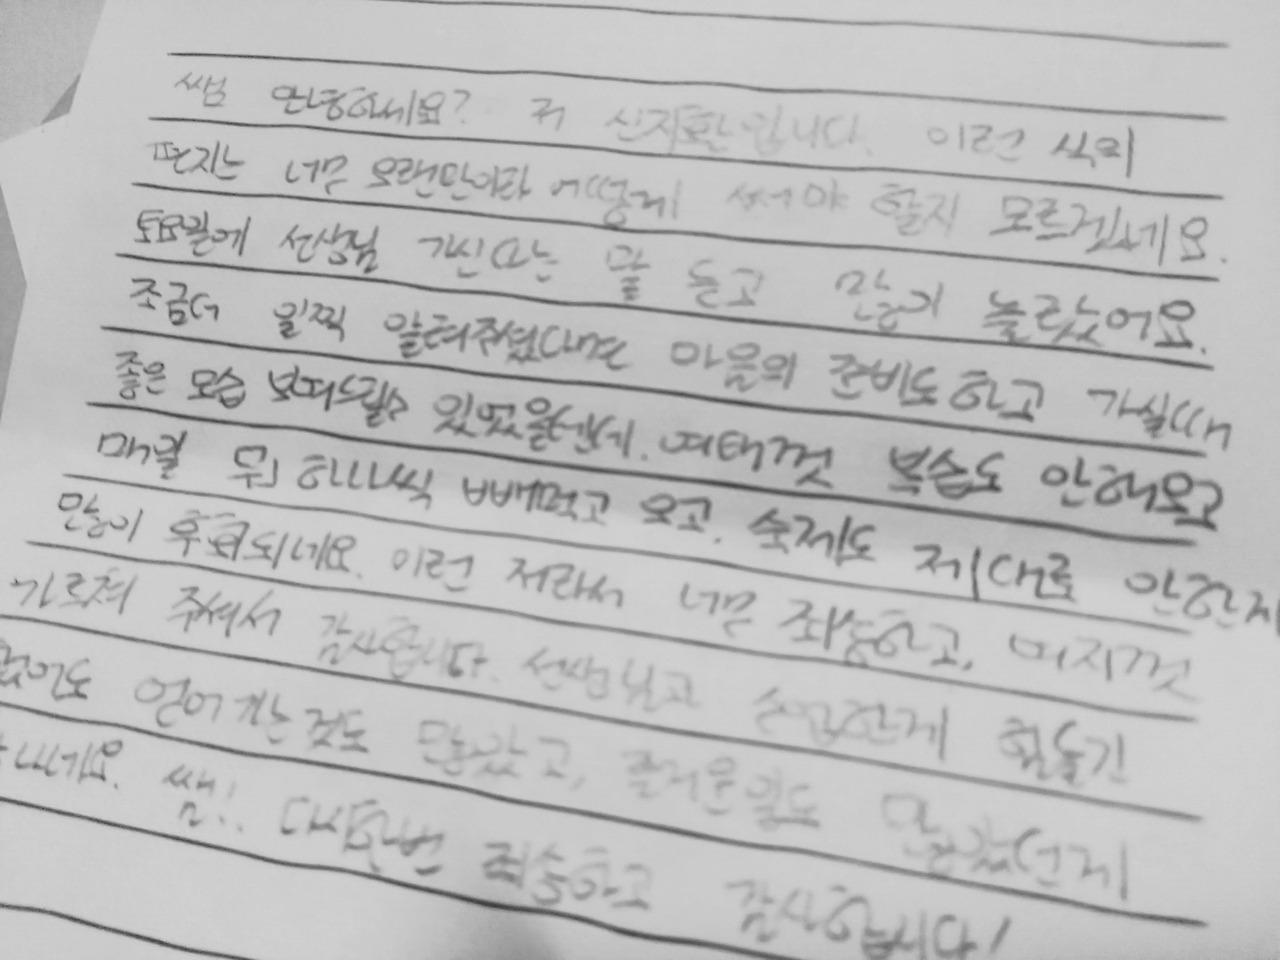 쌤 안녕하세요? 저 신지환입니다. 이런 식의
편지는 너무 오랜만이라 어떻게 써야 할지 모르겠네요.
토요일에 선생님 가신다는 말 듣고 많이 놀랐어요.
조금더 일찍 알려주셨다면 마음의 준비도하고 가실때
좋은 모습 보여드릴수 있었을텐데. 여태껏 복습도 안해오고
매월 뭐 하나씩 빼먹고 오고. 숙제도 제대로 안한지
많이 후회되네요. 이런 저라서 너무 죄송하고, 여지껏
가르쳐 주셔서 감사합니다. 선생님하고 수업한게 힘들긴
얻어가는것도 많았고, 즐거운일도 많았던게
쌤!! 다시한번 죄송하고 감사합니다!